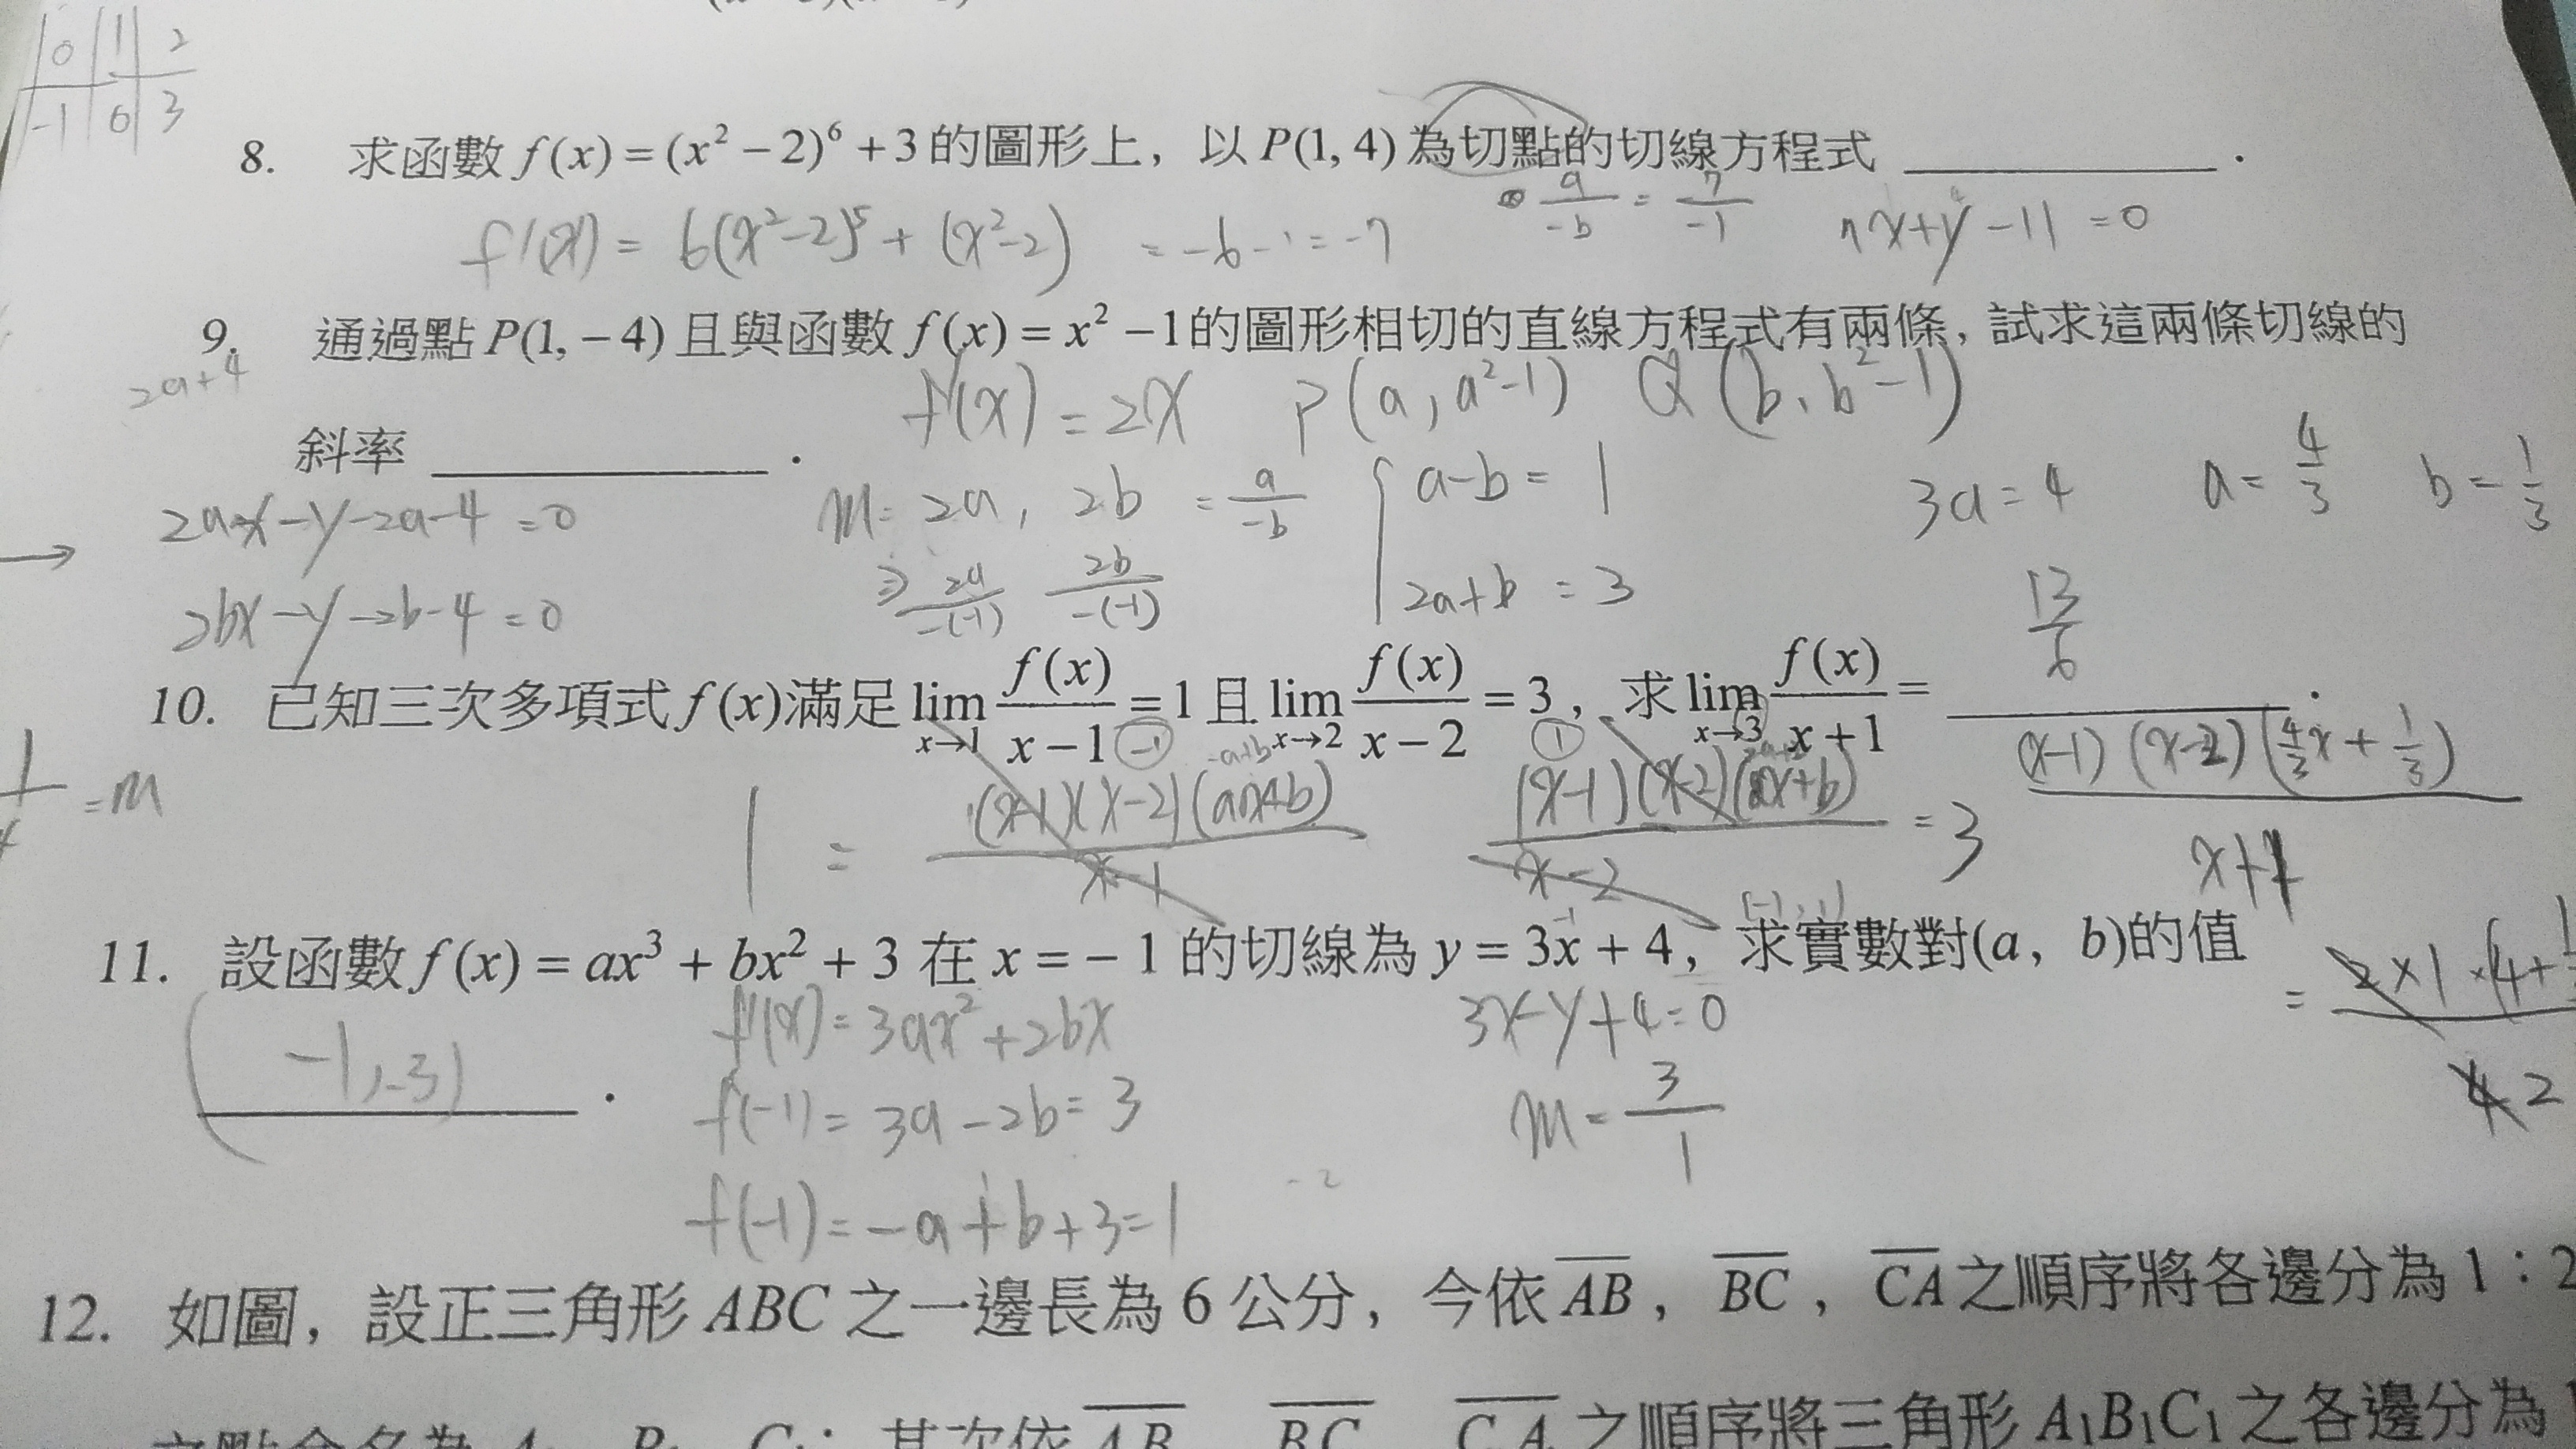 0 1 2
-1 0 3
8. 求函數 f(x) = (x² − 2)⁶ + 3 的圖形上，以 P(1, 4) 為切點的切線方程式 ＿＿＿＿ .
f'(x) = 6(x²-2)⁵ + (x²-2) = -6-1 = -7
a/-b = 7/-1
7x+y-11=0
9. 通過點 P(1, − 4) 且與函數 f(x) = x² − 1 的圖形相切的直線方程式有兩條，試求這兩條切線的
2a+4
f'(x) = 2x P(a, a²-1) Q(b, b²-1)
斜率 ＿＿＿＿ .
2ax-y-2a-4=0
m= 2a, 2b = a/-b
a-b=1
3a=4 a=4/3 b=1/3
2bx-y-2b-4=0
⇒ 2a/-(-1) 2b/-(-1)
2a+b=3
13/6
10. 已知三次多項式 f(x) 滿足 lim x→1 f(x)/(x−1) = 1 且 lim x→2 f(x)/(x−2) = 3，求 lim x→3 f(x)/(x+1) = ＿＿＿＿ .
-1 -a+b 1
=m
1 = (x-1)(x-2)(ax+b)/x-1
(x-1)(x-2)(ax+b)/x-2 = 3
(x-1)(x-2)(4/3x+1/3)/x+1
(-1, 1)
11. 設函數 f(x) = ax³ + bx² + 3 在 x = − 1 的切線為 y = 3x + 4，求實數對(a，b)的值
= 2×1×(4+
4 2
(-1,-3)
＿＿＿＿ .
f'(x)=3ax²+2bx
3x-y+4=0
f(-1)=3a-2b=3
m=3/1
f(-1)=-a+b+3=1
-2
12. 如圖，設正三角形 ABC 之一邊長為 6 公分，今依 AB，BC，CA 之順序將各邊分為 1：2
其次依 AB BC CA 之順序將三角形 A₁B₁C₁ 之各邊分為